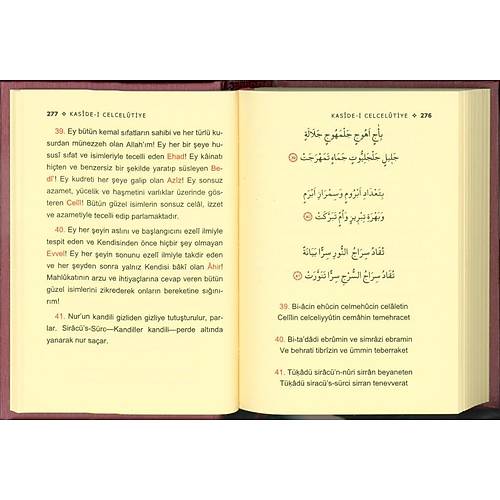 277 ❖ KASÎDE-İ CELCELÛTİYE
39. Ey bütün kemal sıfatların sahibi ve her türlü ku-
surdan münezzeh olan Allah'ım! Ey her şeye hu-
susî sıfat ve isimleriyle tecelli eden Ehad! Ey kâinatı
hiçten ve benzersiz bir şekilde yaratıp süsleyen Be-
dî'! Ey kudreti her şeye galip olan Azîz! Ey sonsuz
azamet, yücelik ve haşmetini varlıklar üzerinde gös-
teren Celîl! Bütün güzel isimlerin sonsuz celâl, izzet
ve azametiyle tecelli edip parlamaktadır.
40. Ey her şeyin aslını ve başlangıcını ezelî ilmiyle
tespit eden ve Kendisinden önce hiçbir şey olmayan
Evvel! Ey her şeyin sonunu ezelî ilmiyle takdir eden
ve her şeyden sonra yalnız Kendisi bâkî olan Âhir!
Mahlûkatının arzu ve ihtiyaçlarına cevap veren bütün
güzel isimlerini zikrederek onların bereketine sığını-
rım!
41. Nur'un kandili gizliden gizliye tutuşturulur, par-
lar. Sirâcü's-Sürc—Kandiller kandili—perde altında
yanarak nur saçar.
KASÎDE-İ CELCELÛTİYE ❖ 276
بِأَجٍ اَهُوجٍ جَلْمَهُوجٍ جَلَالَةٍ
جَلِيلٍ جَلْجَلِيُّوتٍ جَمَاهٍ تَمَهْرَجَتْ
بِتَعْدَادِ اَبْرُومٍ وَسِمْرَازِ اَبْرَمٍ
وَبَهْرَةِ تِبْرِيزٍ وَاُمٍّ تَبَرَّكَتْ
تُقَادُ سِرَاجُ النُّورِ سِرًّا بَيَانَةً
تُقَادُ سِرَاجُ السُّرْجِ سِرًّا تَنَوَّرَتْ
39. Bi-âcin ehûcin celmehûcin celâletin
Celîlin celceliyyûtin cemâhin temehracet
40. Bi-ta'dâdi ebrûmin ve simrâzi ebramin
Ve behrati tibrîzin ve ümmin teberraket
41. Tükâdü sirâcü'n-nûri sirran beyaneten
Tükâdü siracü's-sürci sirran tenevverat